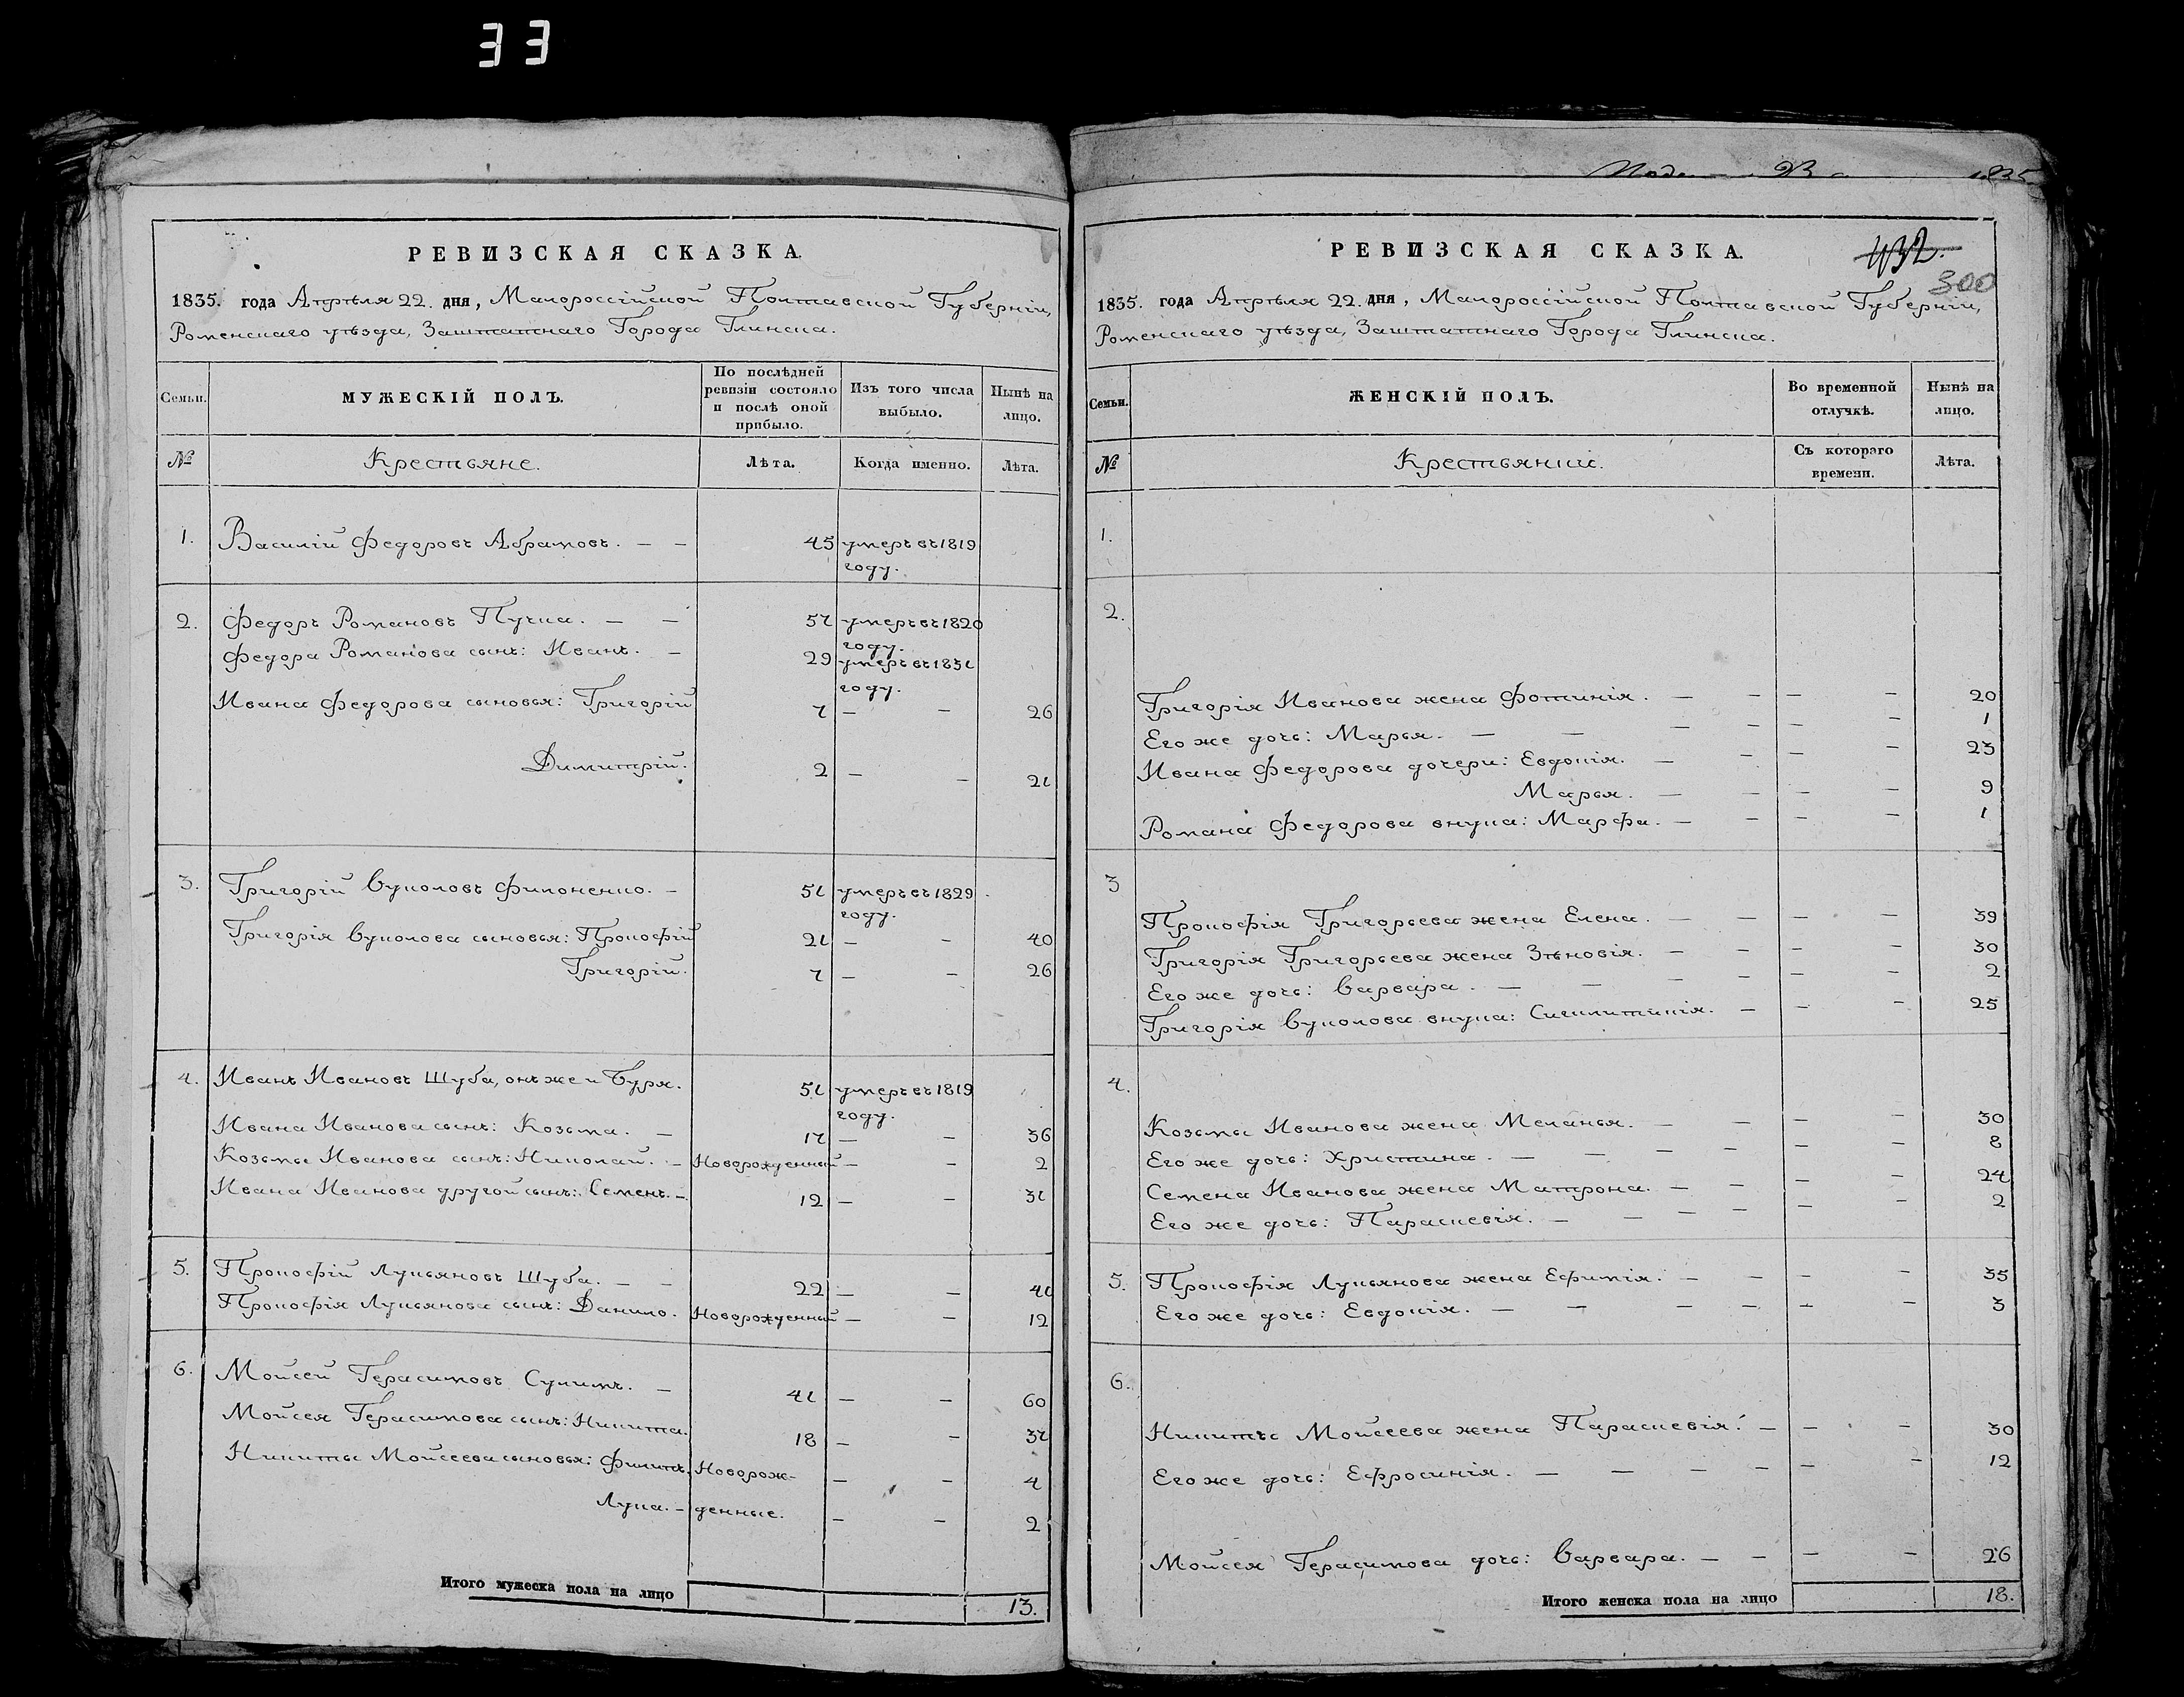 33
РЕВИЗСКАЯ СКАЗКА.
1835. года Апрѣля 22. дня, Малороссійской Полтавской Губерніи,
Роменскаго уѣзда, Заштатнаго Города Глинска.
Семьи.
МУЖЕСКІЙ ПОЛЪ.
По послѣдней
ревизіи состояло
и послѣ оной
прибыло.
Изъ того числа
выбыло.
Нынѣ на
лицо.
№ Крестьяне. Лѣта. Когда именно. Лѣта.
1. Василій Федоровъ Абрамовъ. — — 45 умеръ въ 1819
году.
2. Федоръ Романовъ Пучка. — — 57 умеръ въ 1820
году.
Федора Романова сынъ: Иванъ. — 29 умеръ въ 1831
году.
Ивана Федорова сыновья: Григорій 7 — — 26
Димитрій. 2 — — 21
3. Григорій Вуколовъ Филоненко. — 51 умеръ въ 1829
году.
Григорія Вуколова сыновья: Прокофій 21 — — 40
Григорій. 7 — — 26
4. Иванъ Ивановъ Шуба, онъ же и Буря. 51 умеръ въ 1819
году.
Ивана Иванова сынъ: Козьма. — 17 — — 36
Козьмы Иванова сынъ: Николай. — Новорожденный — — 2
Ивана Иванова другой сынъ: Семенъ. — 12 — — 31
5. Прокофій Лукьяновъ Шуба. — — 22 — — 41
Прокофія Лукьянова сынъ: Данило. Новорожденный — — 12
6. Мойсей Герасимовъ Сулимъ. — 41 — — 60
Мойсея Герасимова сынъ: Никита. 18 — — 37
Никиты Мойсеева сыновья: Филипъ. Новорож- — — 4
Лука. — денные. — — 2
Итого мужеска пола на лицо 13.
1835
РЕВИЗСКАЯ СКАЗКА.
300
1835. года Апрѣля 22. дня, Малороссійской Полтавской Губерніи,
Роменскаго уѣзда, Заштатнаго Города Глинска.
Семьи.
ЖЕНСКІЙ ПОЛЪ.
Во временной
отлучкѣ.
Нынѣ на
лицо.
№ Крестьянки.
Съ котораго
времени.
Лѣта.
1.
2.
Григорія Иванова жена Фотинія. — — — — 20
Его же дочь: Марья. — — — — — 1
Ивана Федорова дочери: Евдокія. — — — — 23
Марья. — — — — 9
Романа Федорова внука: Марфа. — — — — 1
3
Прокофія Григорьева жена Елена. — — — — 39
Григорія Григорьева жена Зѣновія. — — — — 30
Его же дочь: Варвара. — — — — — — 2
Григорія Вуколова внука: Сигклитикія. — — — 25
4.
Козьмы Иванова жена Меланья. — — — — 30
Его же дочь: Христина. — — — — — — 8
Семена Иванова жена Матрона. — — — — 24
Его же дочь: Параскевія. — — — — — — 2
5. Прокофія Лукьянова жена Ефимія. — — — — 35
Его же дочь: Евдокія. — — — — — — 3
6.
Никиты Мойсеева жена Параскевія. — — — 30
Его же дочь: Ефросинія. — — — — — — 12
Мойсея Герасимова дочь: Варвара. — — — — 26
Итого женска пола на лицо 18.